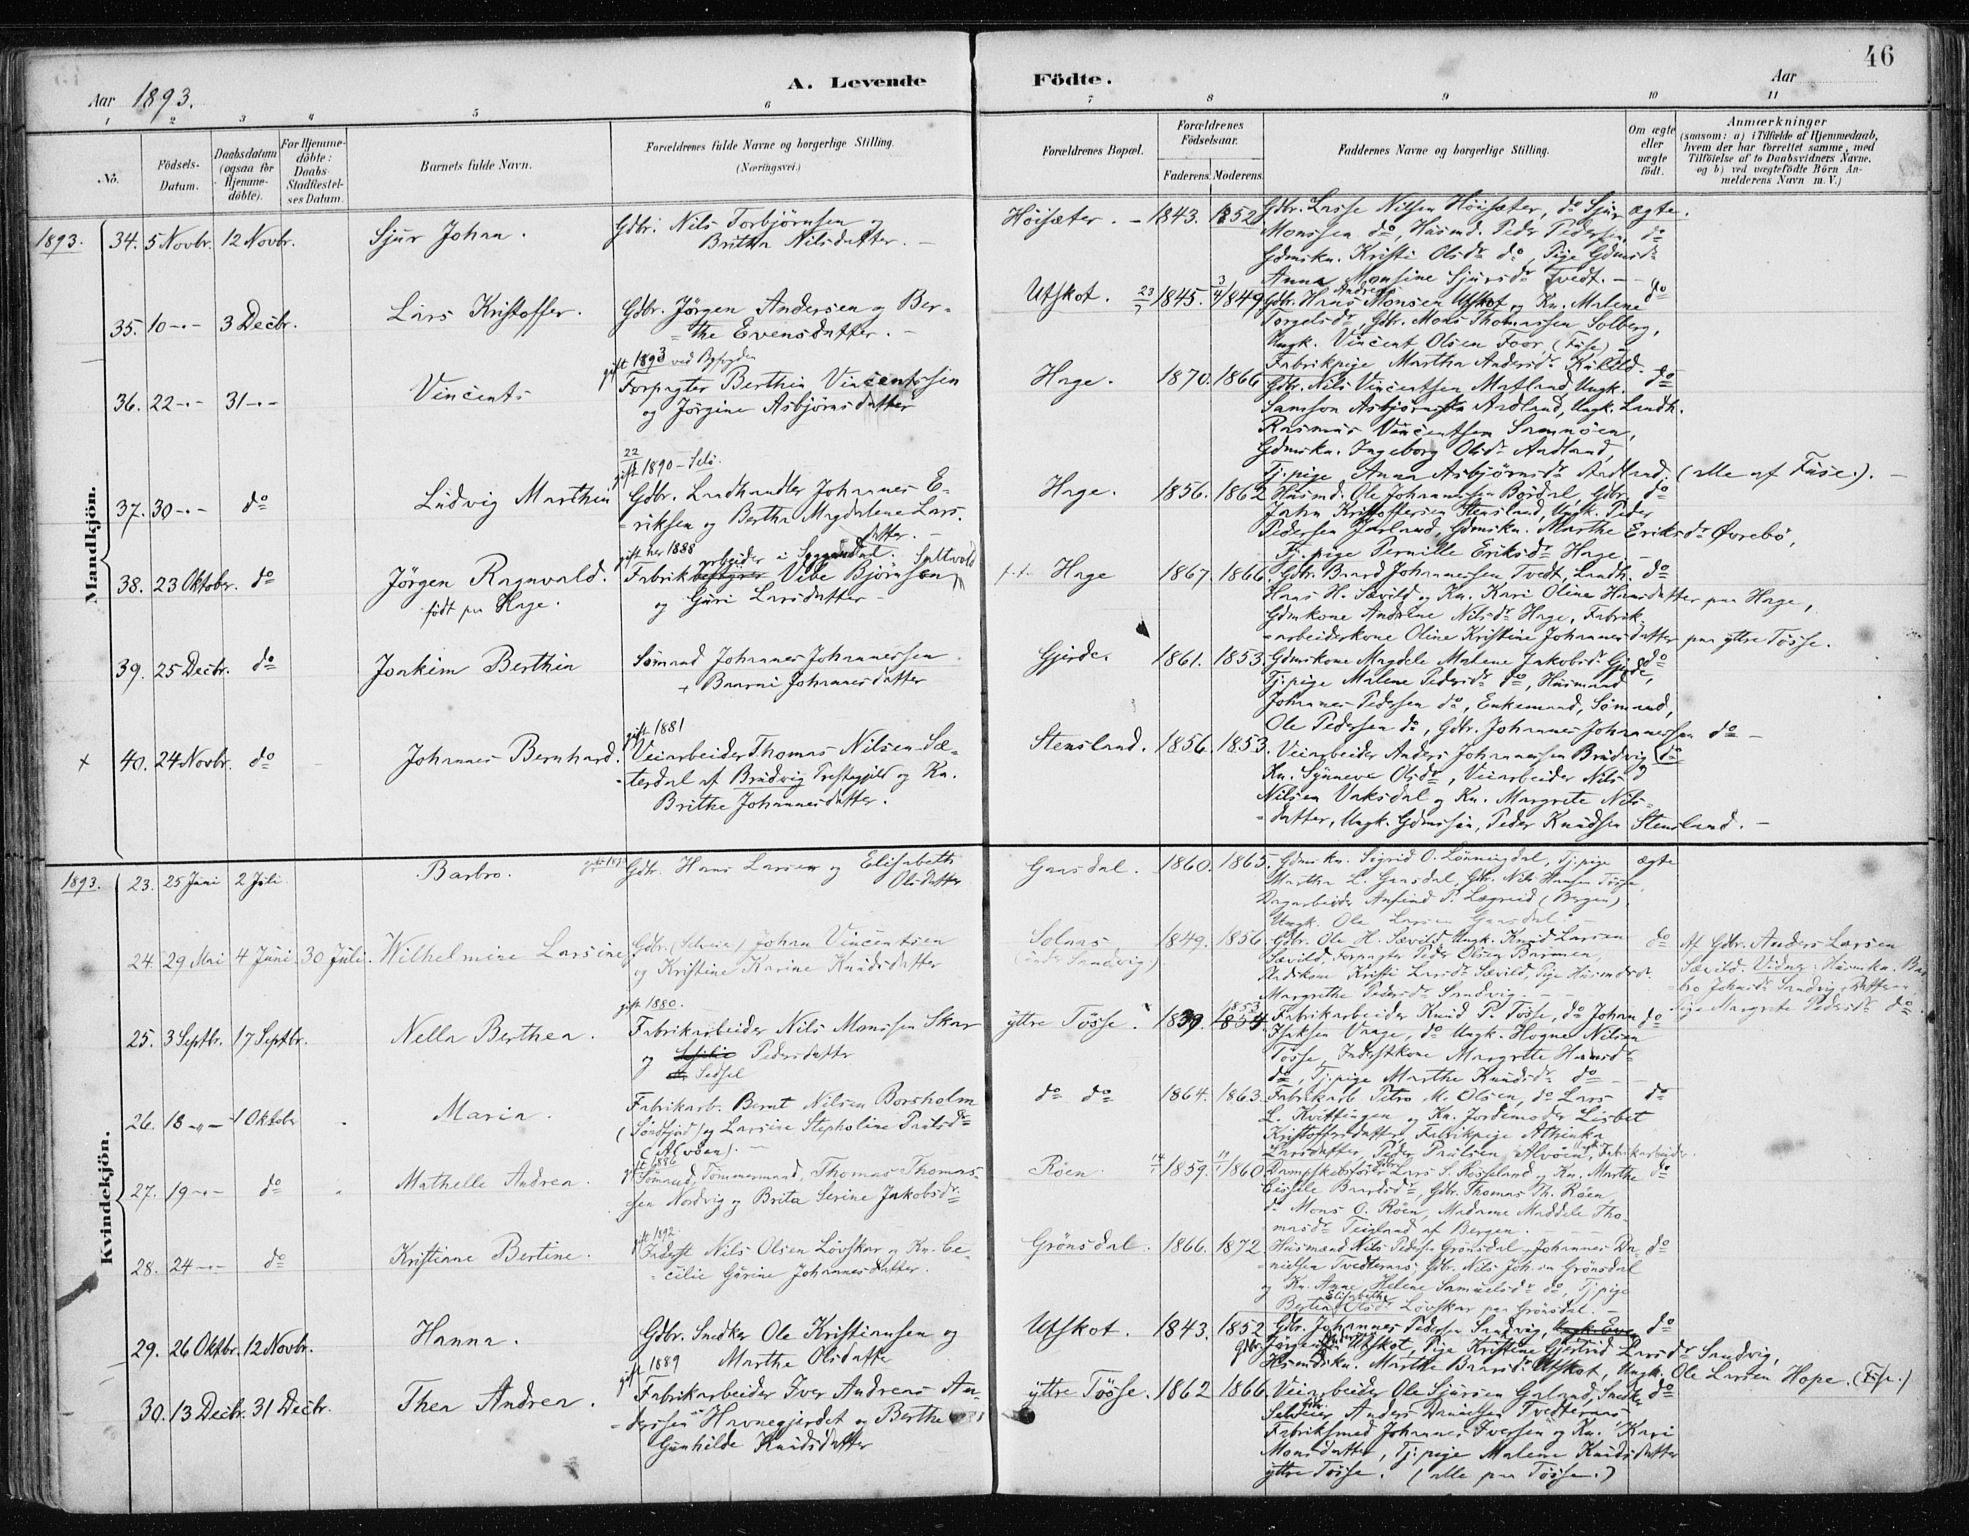 46
Aar 1893.
A. Levende Födte.
Aar
1 2 3 4 5 6 7 8 9 10 11
No.
Födsels-Datum.
Daabsdatum (ogsaa for Hjemme-döbte).
For Hjemme-döbte: Daabs-Stadfæstel-ses Datum.
Barnets fulde Navn.
Forældrenes fulde Navne og borgerlige Stilling.
(Næringsvei.)
Forældrenes Bopæl.
Forældrenes Födselsaar.
Faderens. Moderens.
Faddernes Navne og borgerlige Stilling.
Om ægte eller uægte födt.
Anmærkninger
(saasom: a) i Tilfælde af Hjemmedaab,
hvem der har forrettet samme, med
Tilföielse af to Daabsvidners Navne,
og b) ved uægtefödte Börn An-
melderens Navn m. V.)
Mandkjön.
1893. 34. 5 Novbr. 12 Novbr. Sjur Johan.
Gdbr. Nils Torbjörnsen og
Britha Nilsdatter. –
Höisæter. – 1843. 1852
Gdbr. Lasse Nilsen Höisæter, do Sjur ægte.
Monssen do, Husmd. Peder Pedersen do
Gdmskn. Kristi Olsdr do, Pige Gdmsdr
Anna Monsine Sjursdr Tvedt. –
35. 10 -"- 3 Decbr. Lars Kristoffer.
Gdbr. Jörgen Andersen og Ber-
the Evensdatter. –
Utskot. 23/7 1845. 3/4 1849
Gdbr. Hans Andreas Monsen Utskot og Kn. Malene do
Torgelsdr, Gdbr. Mons Thomassen Solberg,
Ungk. Vincent Olsen Foer, (Fuse)
Fabrikpige Martha Andersdr
36. 22 -"- 31 -"- Vincents
gift 1893 ved Bgfogden
Forpagter Berthin Vincentsen
og Jörgine Asbjörnsdatter
Hage. 1870. 1866
Gdbr. Nils Vincentsen Matland, Ungk. do
Samson Asbjörnsen Aadland, Ungk. Landh.
Rasmus Vincentsen Samnöen,
Gdmskn. Ingeborg Olsdr Aadland,
Tj.pige Anna Asbjörnsdr Aadland. (alle af Fuse.). –
37. 30 -"- do Ludvig Marthin
gift 1890 –
Gdbr. Landhandler Johannes E-
riksen og Bertha Magdalene Lars-
datter. –
Hage. 1856. 1862
Husmd. Ole Johannessen Bordal, Gdbr. do
John Kristoffersen Stensland, Ungk. Peder
Pedersen Jarland, Gdmskn. Marthe Eriksdr Övrebö,
Tj. pige Pernille Eriksdr Hage. –
38. 23 Oktobr. do Jörgen Ragnvald.
födt paa Hage.
gift her 1888
Fabrikarbeider i Vibe Björnsen
og Guri Larsdatter –
Hage 1867. 1866.
Gdbr. Baard Johannessen Tvedt, Landh. do
Hans H. Sævild og Kn. Kari Oline Hansdatter paa Hage,
Gdmkone Andrine Nilsdr Hage, Fabrik-
arbeiderkone Oline Kristine Johannesdatter paa yttre Tösse.
39. 25 Decbr. do Joakim Berthin
Sömand Johannes Johannessen
+ Baarni Johannesdatter
Gjerde. 1861. 1853.
Gdmskone Magdele Malene Jakobsdr Gjerde, do
Tj.pige Malene Pedersdr do, Husmand
Johannes Pedersen do, Enkemand, Sömand,
Ole Pedersen do, Gdbr. Johannes Johannessen do –
+ 40. 24 Novbr. do Johannes Bernhard.
gift 1881
Veiarbeider Thomas Nilsen Sæ-
terdal af Brudvig Præstegjeld og Kn.
Brithe Johannesdatter.
Stensland. 1856. 1853.
Veiarbeider Anders Johannessen Brudvig og do
Kn. Synneve Olsdr, Veiarbeider Nils
Nilsen Vaksdal og Kn. Margrete Nils-
datter, Ungk. Gdmssön, Peder Knudsen Stensland. –
Kvindekjön.
1893. 23. 25 Juni 2 Juli. Barbro.
Gdbr. Hans Larsen og Elisabeth
Olsdatter
Gaasdal. 1860. 1865.
Gdmskn. Sigrid O. Lönningdal, Tj. pige ægte
Martha L. Gaasdal, Gdbr. Nils Hansen Tösse,
Dagarbeider Anfind P. Lægreid (Bergen),
Ungk. Ole Larsen Gaasdal. –
24. 29 Mai 4 Juni 30 Juli. Wilhelmine Larsine
Gdbr. (Selveie) Johan Vincentsen
og Kristine Karine Knudsdatter
Solnæs. (under Sandvig.) 1849. 1856.
Gdbr. Ole H. Sævild, Ungk. Knud Larsen do
Sævild, Forpagter Peder Olsen Barmen,
Kristi Larsdr Sævild, Pige Husmdsdr.
Margrethe Pedersdr Sandvig. –
Af Gdbr. Anders Larsen
Sævild. Vidner: Husmkn. Bar-
bro Johnsdr Sandvig, Datteren
Pige Margrete Pedersdr do.
25. 3 Septbr. 17 Septbr. Nella Berthea.
gift 1880.
Fabrikarbeider Nils Monssen Skar
og Pedersdatter
Sedsel
yttre Tösse. 1839 1853
Fabrikarbeider Knud P. Tösse, do Johan do
Isaksen Vaage, do Ungk. Hogne Nilsen
Tösse, Inderstkone Margrete Hansdr
do, Tj.pige Marthe Knudsdr do –
26. 18 -"- 1 Oktobr Maria.
Fabrikarb. Bernt Nilsen Borsholm
(Söndfjord) og Larsine Stepholine Paulsdr
(Alvöen). –
do do 1864. 1863.
Fabrikarb Petro M. Olsen, do Lars do
L. Kvittingen og Kn. Jordemoder Lisbet
Kristoffersdatter, Fabrikpige Athinka
Larsdatter, Peder Paulsen Alvöen, Fabrikarbeider.
27. 19 -"- do Mathelle Andrea.
gift 1886
Sömand, Tömmermand, Thomas Thomas-
sen Nordvig og Brita Serine Jakobsdr
Röen. 1859. 1860
Dampskibsförer Lars S. Rosseland og Kn. Marthe do
Baardsdr, Gdbr. Thomas Th. Röen,
do Mons O. Röen, Madame Maddele Tho-
masdr af Bergen. –
28. 24 -"- do Kristiane Bertine.
gift 1892
Inderst Nils Olsen Lövskar og Kn. Ce-
cilie Gurine Johannesdatter.
Grönsdal. 1866. 1872
Husmand Nils Peders. Grönsdal, Johannes Da- do
nielsen Tvedternæs, Gdbr. Nils Joh.sen Grönsdal
og Kn. Anne Helene Samuelsdr do, Tj. pige
Bertine Elisabeth Olsdr Lövskar paa Grönsdal. –
29. 26 Oktbr. 12 Novbr. Hanna.
Gdbr. Snedker Ole Kristiansen og
Marthe Olsdatter
Utskot. 1843. 1852
Gdbr. Johannes Pedersen Sandvig, Ungk. Even do
Gdbr. Jörgen Andersen Utskot, Pige Kristine Gjertrud Larsdr Sandvig,
Husmdskn. Marthe Baarsdr Utskot, Ungk. Ole Larsen Hope. (Fuse.)
30. 13 Decbr. 31 Decbr. Thea Andrea.
gift 1889
Fabrikarbeider Iver Andreas An-
derssen Havnegjerdet og Berthe
Gunhilde Knudsdatter
yttre Tösse. 1862 1866.
Veiarbeider Ole Sjursen Galand, Snedker do
Selveier Anders Danielsen Tvedternæs
Fabriksmed Johannes Iversen og Kn. Kari
Monsdatter, Tj.pige Malene Knudsdatter
yttre Tösse. (alle paa Tösse.)